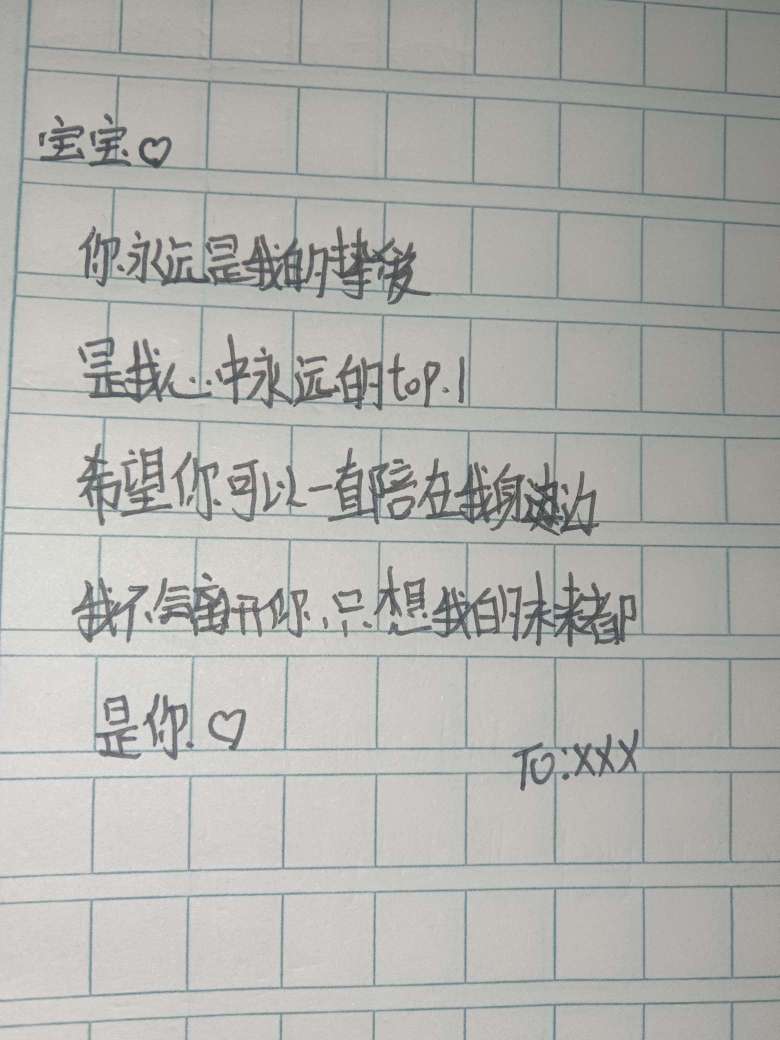 宝宝♡
你永远是我的挚爱
是我心中永远的top.1
希望你可以一直陪在我身边
我不会离开你,只想我的未来都
是你.♡
TO:XXX